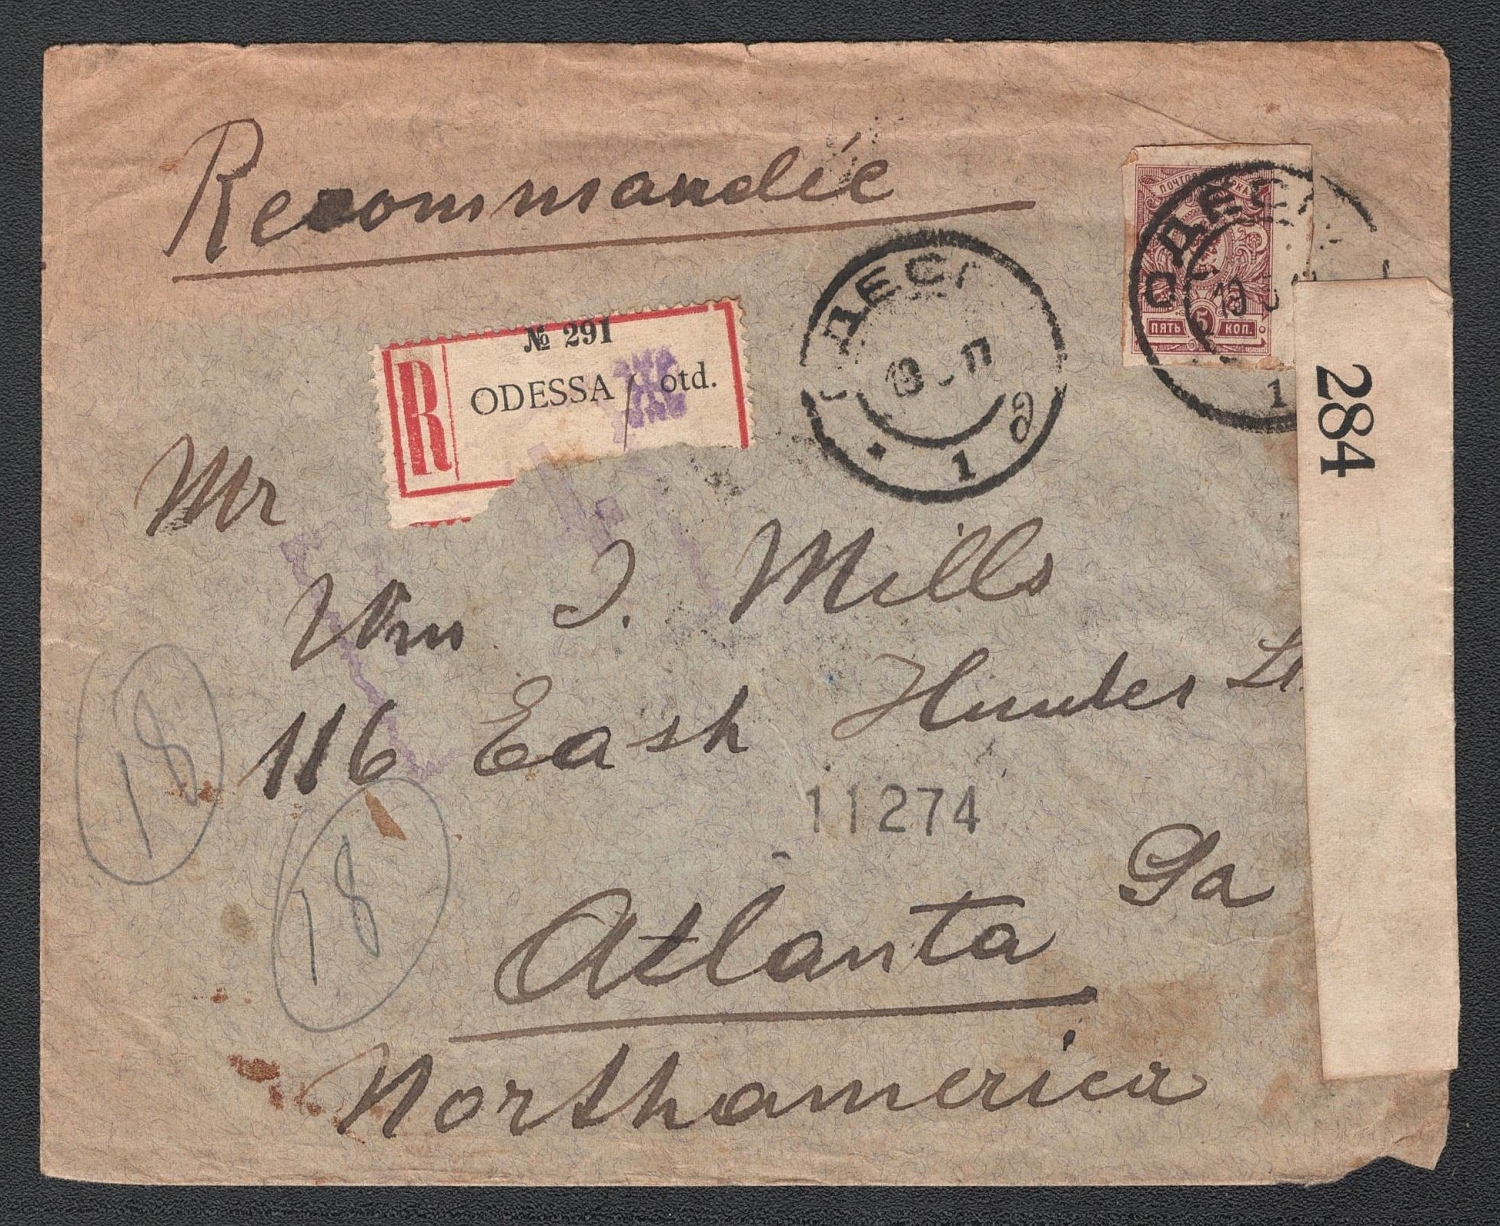 Recommandée
№ 291
R ODESSA / otd.
ОДЕС
1
ПЯТЬ 5 КОП.
ОДЕС
1
284
Mr
Wm J. Mills
116 East Hunter St.
11274
Atlanta Ga
Northamerica
18
18